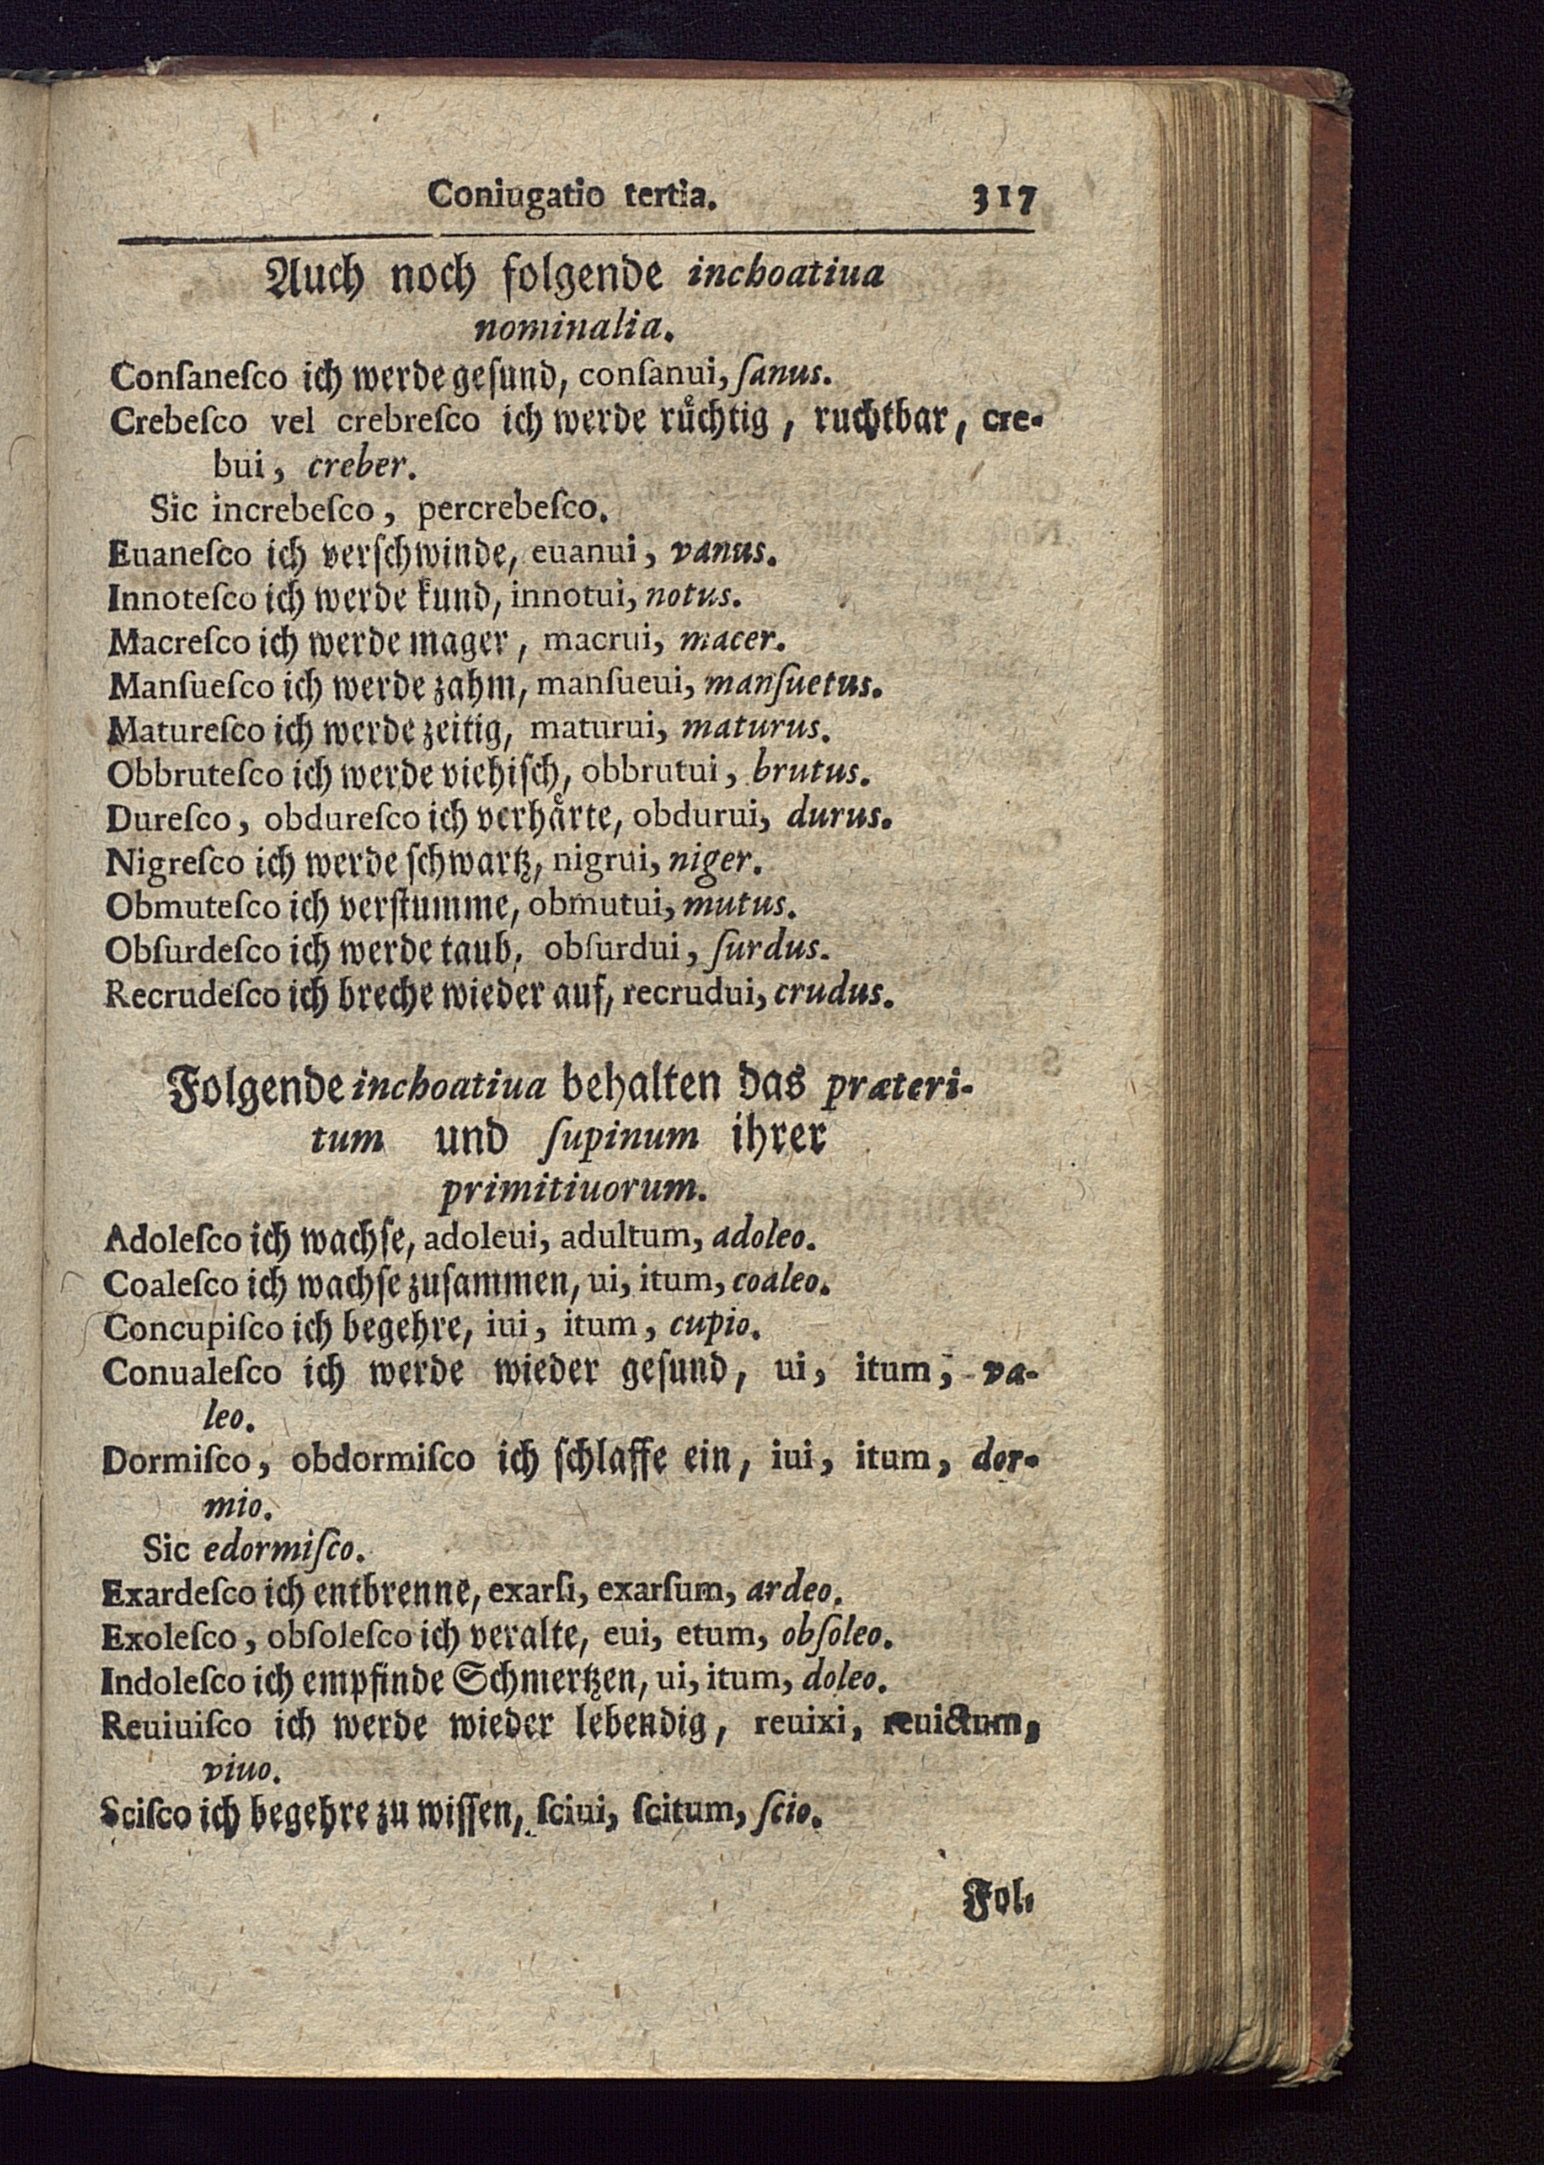 Coniugatio tertia. 317
Auch noch folgende inchoatiua
nominalia.
Conſaneſco ich werde geſund, conſanui, ſanus.
Crebeſco vel crebreſco ich werde ruͤchtig, ruchtbar, cre-
bui, creber.
Sic increbeſco, percrebeſco.
Euaneſco ich verſchwinde, euanui, vanus.
Innoteſco ich werde kund, innotui, notus.
Macreſco ich werde mager, macrui, macer.
Manſueſco ich werde zahm, manſueui, manſuetus.
Matureſco ich werde zeitig, maturui, maturus.
Obbruteſco ich werde viehiſch, obbrutui, brutus.
Dureſco, obdureſco ich verhaͤrte, obdurui, durus.
Nigreſco ich werde ſchwartz, nigrui, niger.
Obmuteſco ich verſtumme, obmutui, mutus.
Obſurdeſco ich werde taub, obſurdui, ſurdus.
Recrudeſco ich breche wieder auf, recrudui, crudus.
Folgende inchoatiua behalten das præteri-
tum und ſupinum ihrer
primitiuorum.
Adoleſco ich wachſe, adoleui, adultum, adoleo.
Coaleſco ich wachſe zuſammen, ui, itum, coaleo.
Concupiſco ich begehre, iui, itum, cupio.
Conualeſco ich werde wieder geſund, ui, itum, va-
leo.
Dormiſco, obdormiſco ich ſchlaffe ein, iui, itum, dor-
mio.
Sic edormiſco.
Exardeſco ich entbrenne, exarſi, exarſum, ardeo.
Exoleſco, obſoleſco ich veralte, eui, etum, obſoleo.
Indoleſco ich empfinde Schmertzen, ui, itum, doleo.
Reuiuiſco ich werde wieder lebendig, reuixi, reuictum,
viuo.
Sciſco ich begehre zu wiſſen, ſciui, ſcitum, ſcio.
Fol-